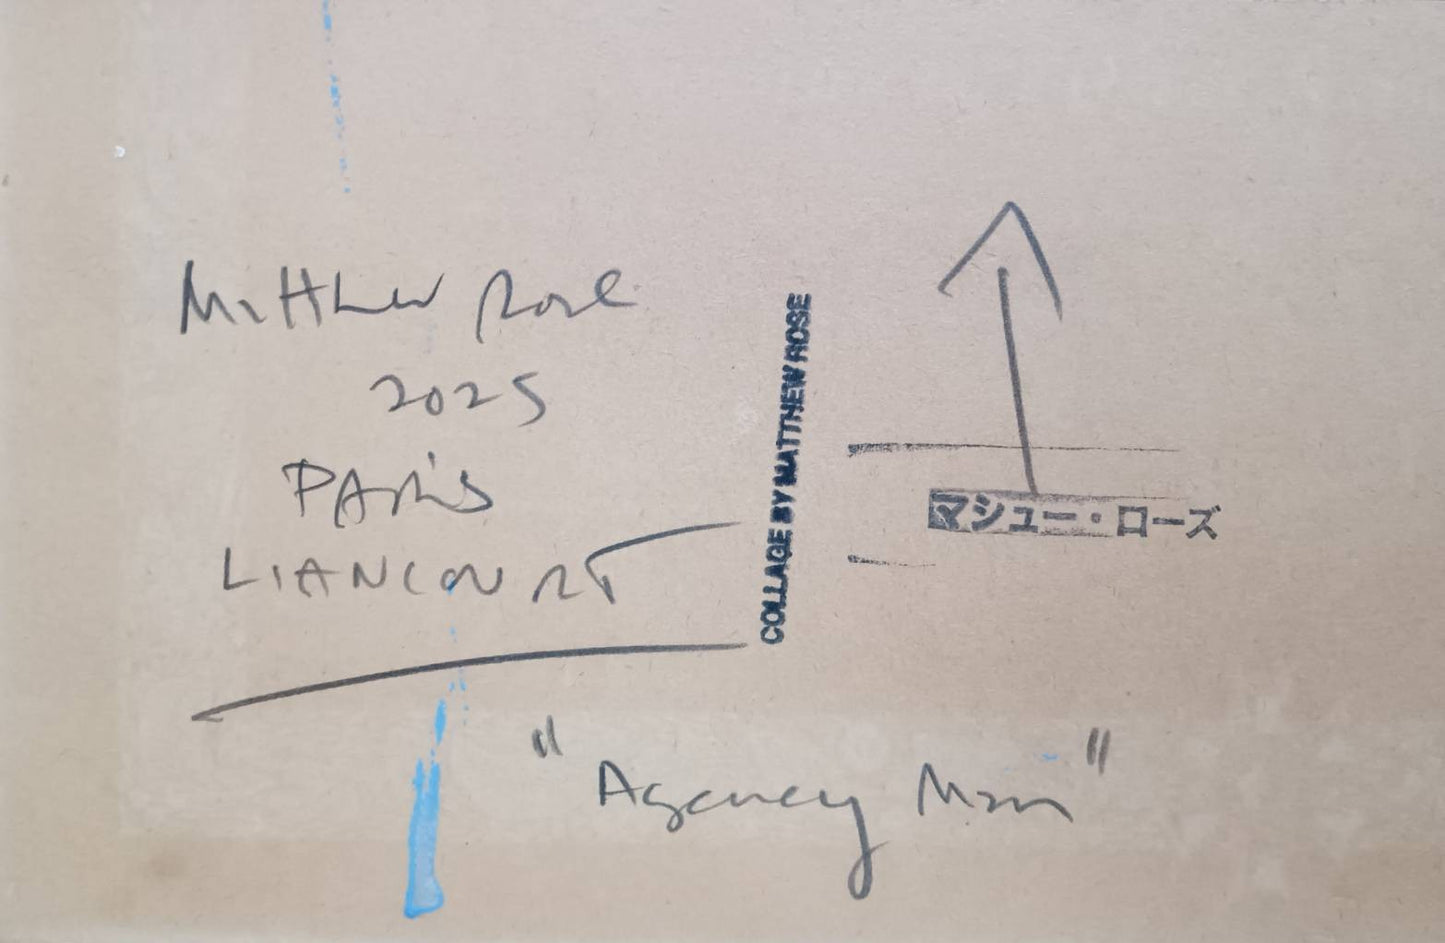 Matthew Rose
2025
PARis
LIANCOURT
COLLAGE BY MATTHEW ROSE
マシュー・ローズ
"Agency Man"